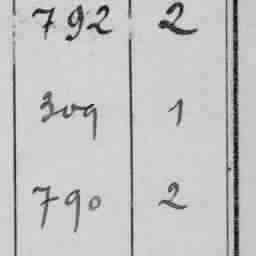 792 2
309 1
790 2